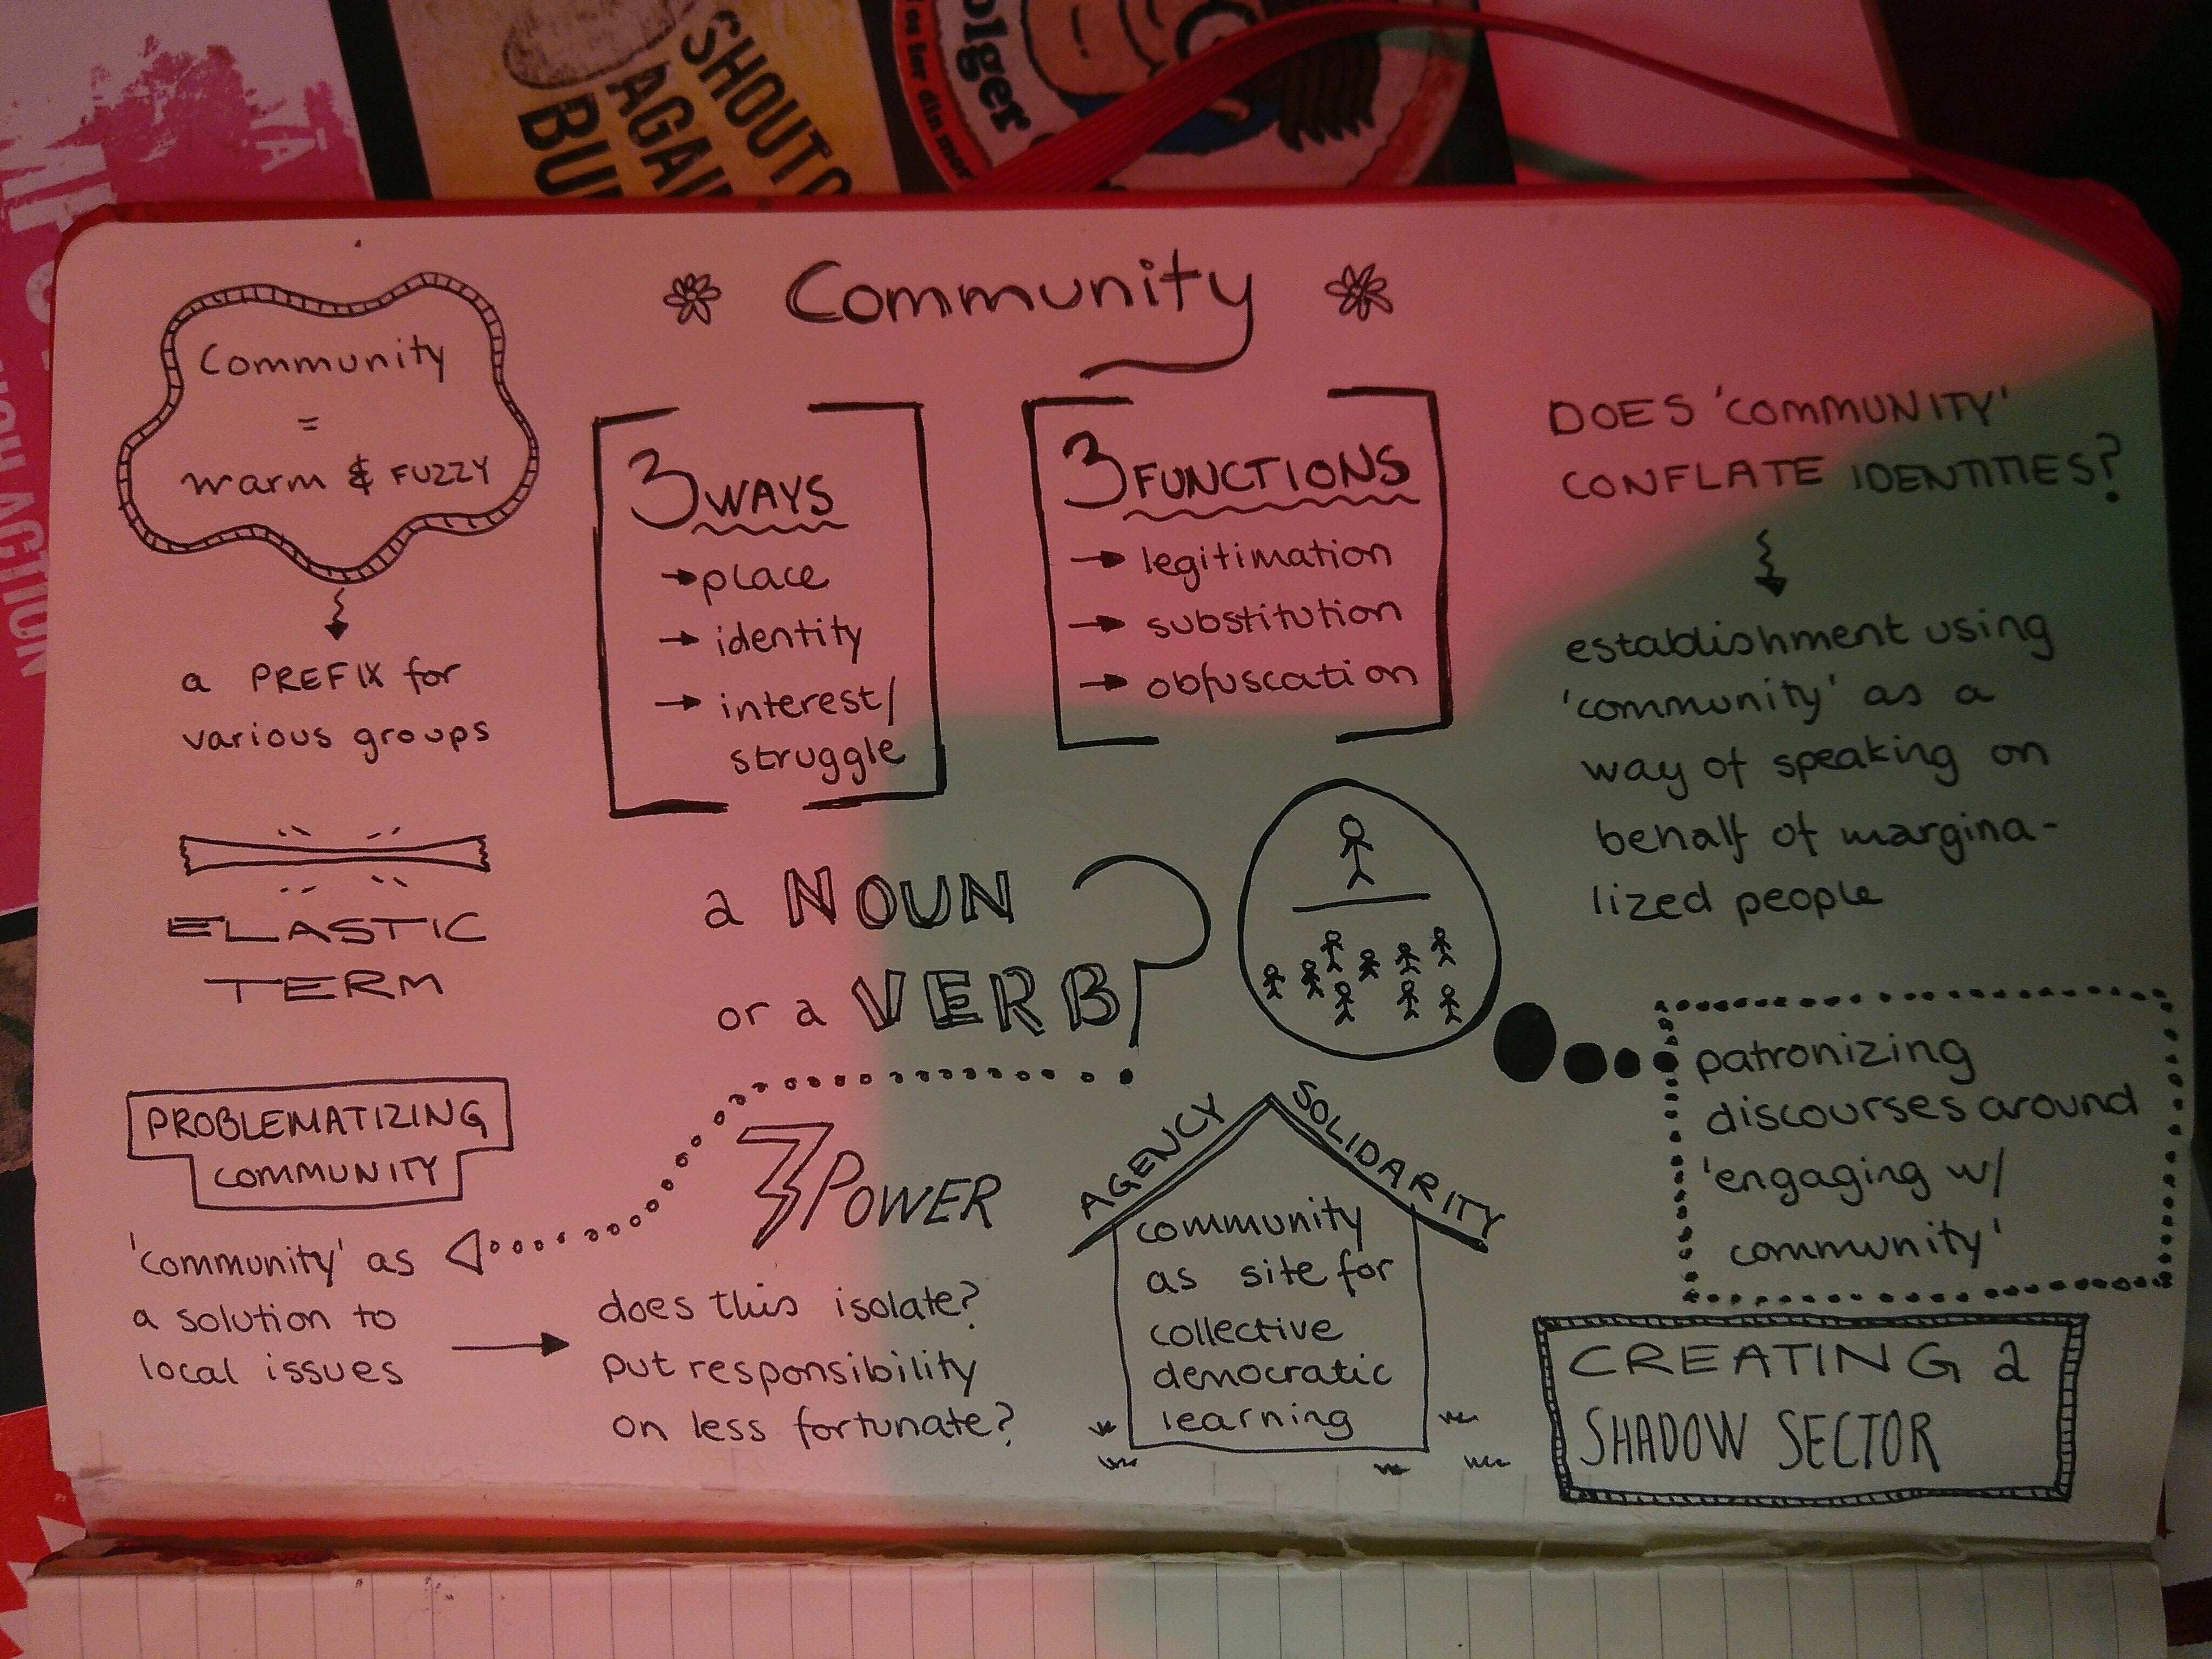 SHOUT
AGAI
BU
olger
TA
ACTION
Community
Community
=
warm & FUZZY
a PREFIX for
various groups
ELASTIC
TERM
PROBLEMATIZING
COMMUNITY
'community' as
a solution to
local issues
3 WAYS
place
identity
interest/
struggle
3 FUNCTIONS
legitimation
substitution
obfuscation
a NOUN
or a VERB?
POWER
does this isolate?
put responsibility
on less fortunate?
AGENCY
SOLIDARITY
community
as site for
collective
democratic
learning
DOES 'COMMUNITY'
CONFLATE IDENTITIES?
establishment using
'community' as a
way of speaking on
behalf of margina-
lized people
patronizing
discourses around
'engaging w/
community'
CREATING a
SHADOW SECTOR